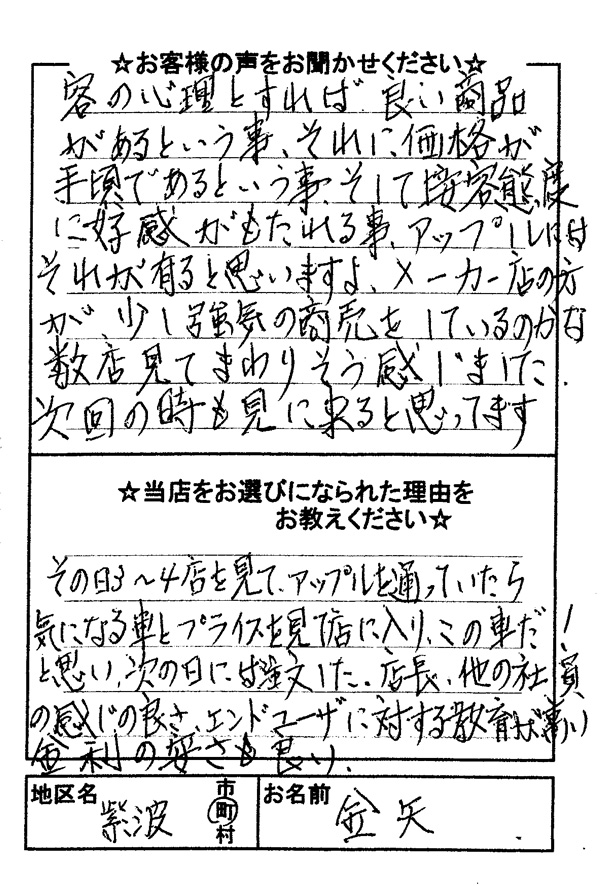 ☆お客様の声をお聞かせください☆
客の心理とすれば 良い商品
があるという事、それに、価格が
手頃であるという事、そして接客態度
に好感がもたれる事、アップルには
それが有ると思いますよ、メーカー店の方
が、少し強気の商売をしているのかな
数店見てまわりそう感じました.
次回の時も見に来ると思ってます
☆当店をお選びになられた理由を
お教えください☆
その日3〜4店を見て、アップルを通っていたら
気になる車とプライスを見て店に入り、この車だ!
と思い、次の日には注文した. 店長、他の社員
の感じの良さ、エンドユーザに対する教育が高い
金利の安さも良い.
地区名
紫波
市
町
村
お名前
金矢